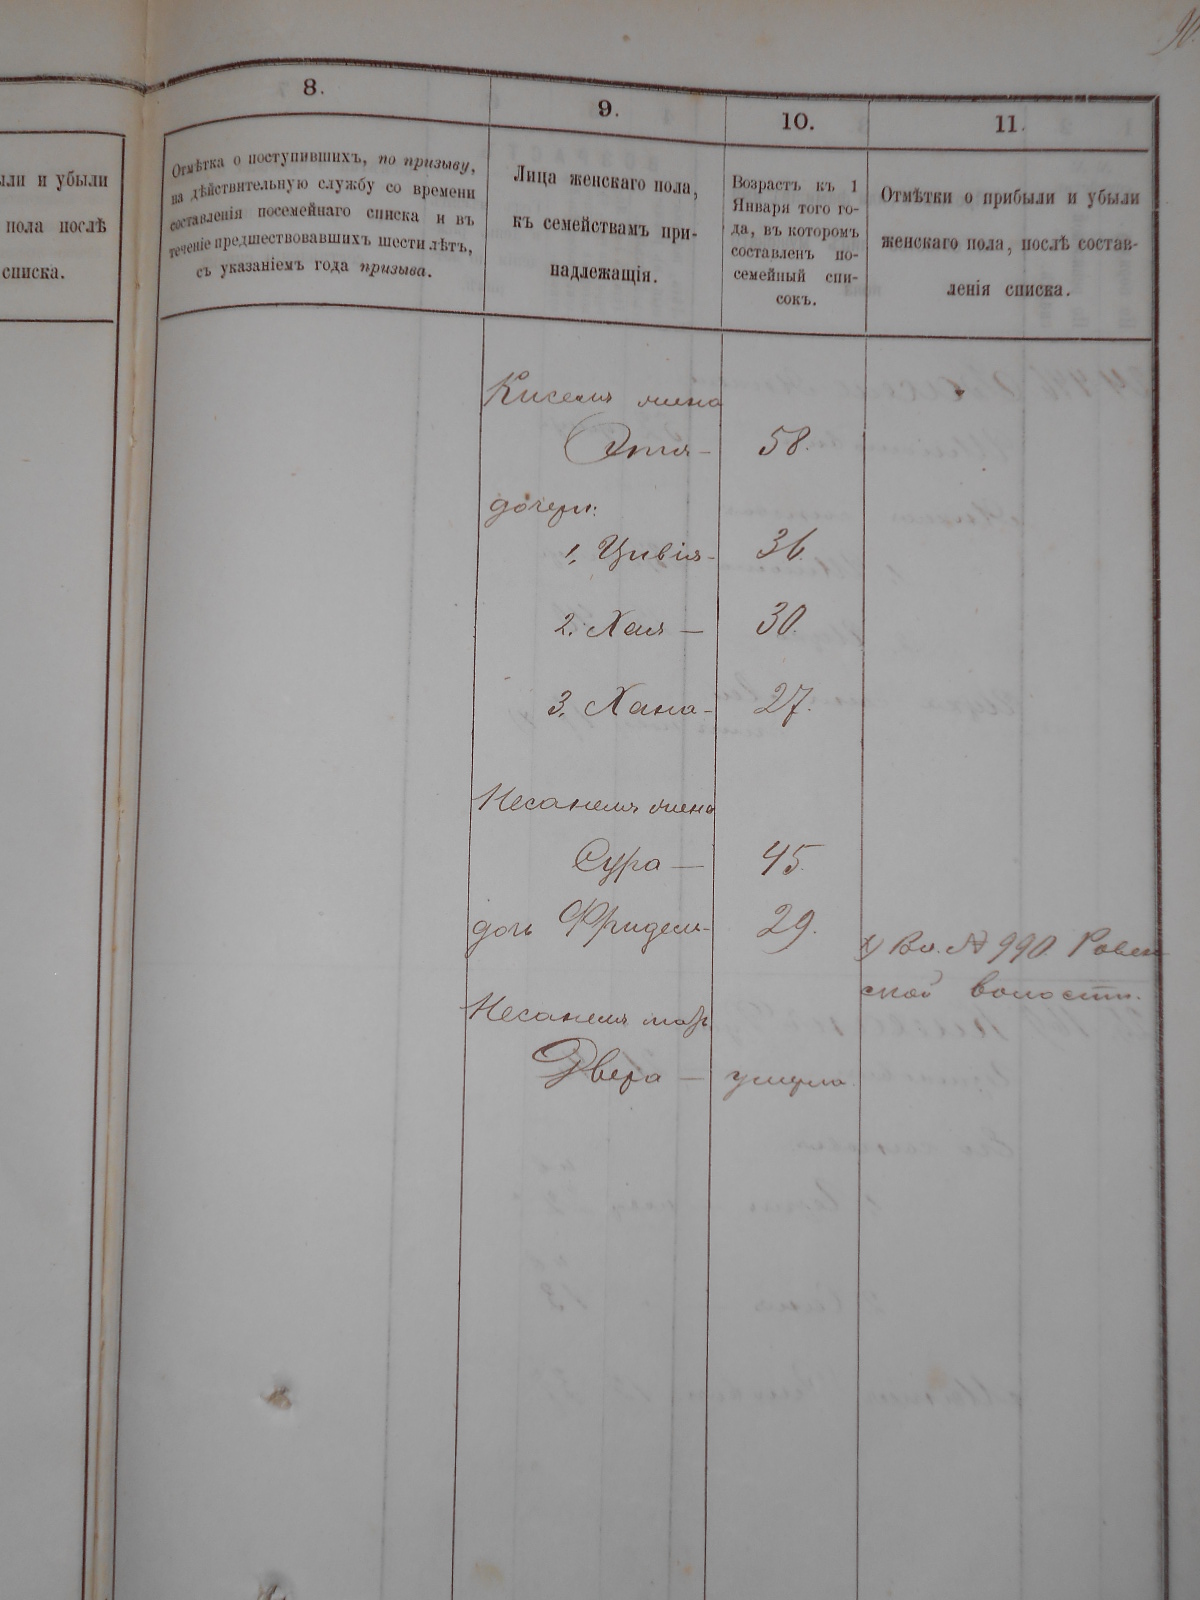 90.
8.
9.
10.
11.
ыли и убыли
пола послѣ
списка.
Отмѣтка о поступившихъ, по призыву,
на дѣйствительную службу со времени
составленія посемейнаго списка и въ
теченіе предшествовавшихъ шести лѣтъ,
съ указаніемъ года призыва.
Лица женскаго пола,
къ семействамъ при-
надлежащія.
Возрастъ къ 1
Января того го-
да, въ которомъ
составленъ по-
семейный спи-
сокъ.
Отмѣтки о прибыли и убыли
женскаго пола, послѣ состав-
ленія списка.
Киселя жена
Этля — 58.
дочери:
1. Цивія — 36.
2. Хая — 30.
3. Хана — 27.
Несанеля жена
Сура — 45.
дочь Фридель — 29.
x) Вл. № 990. Ровен
ской волости.
Несанеля мать
Двера — умерла.